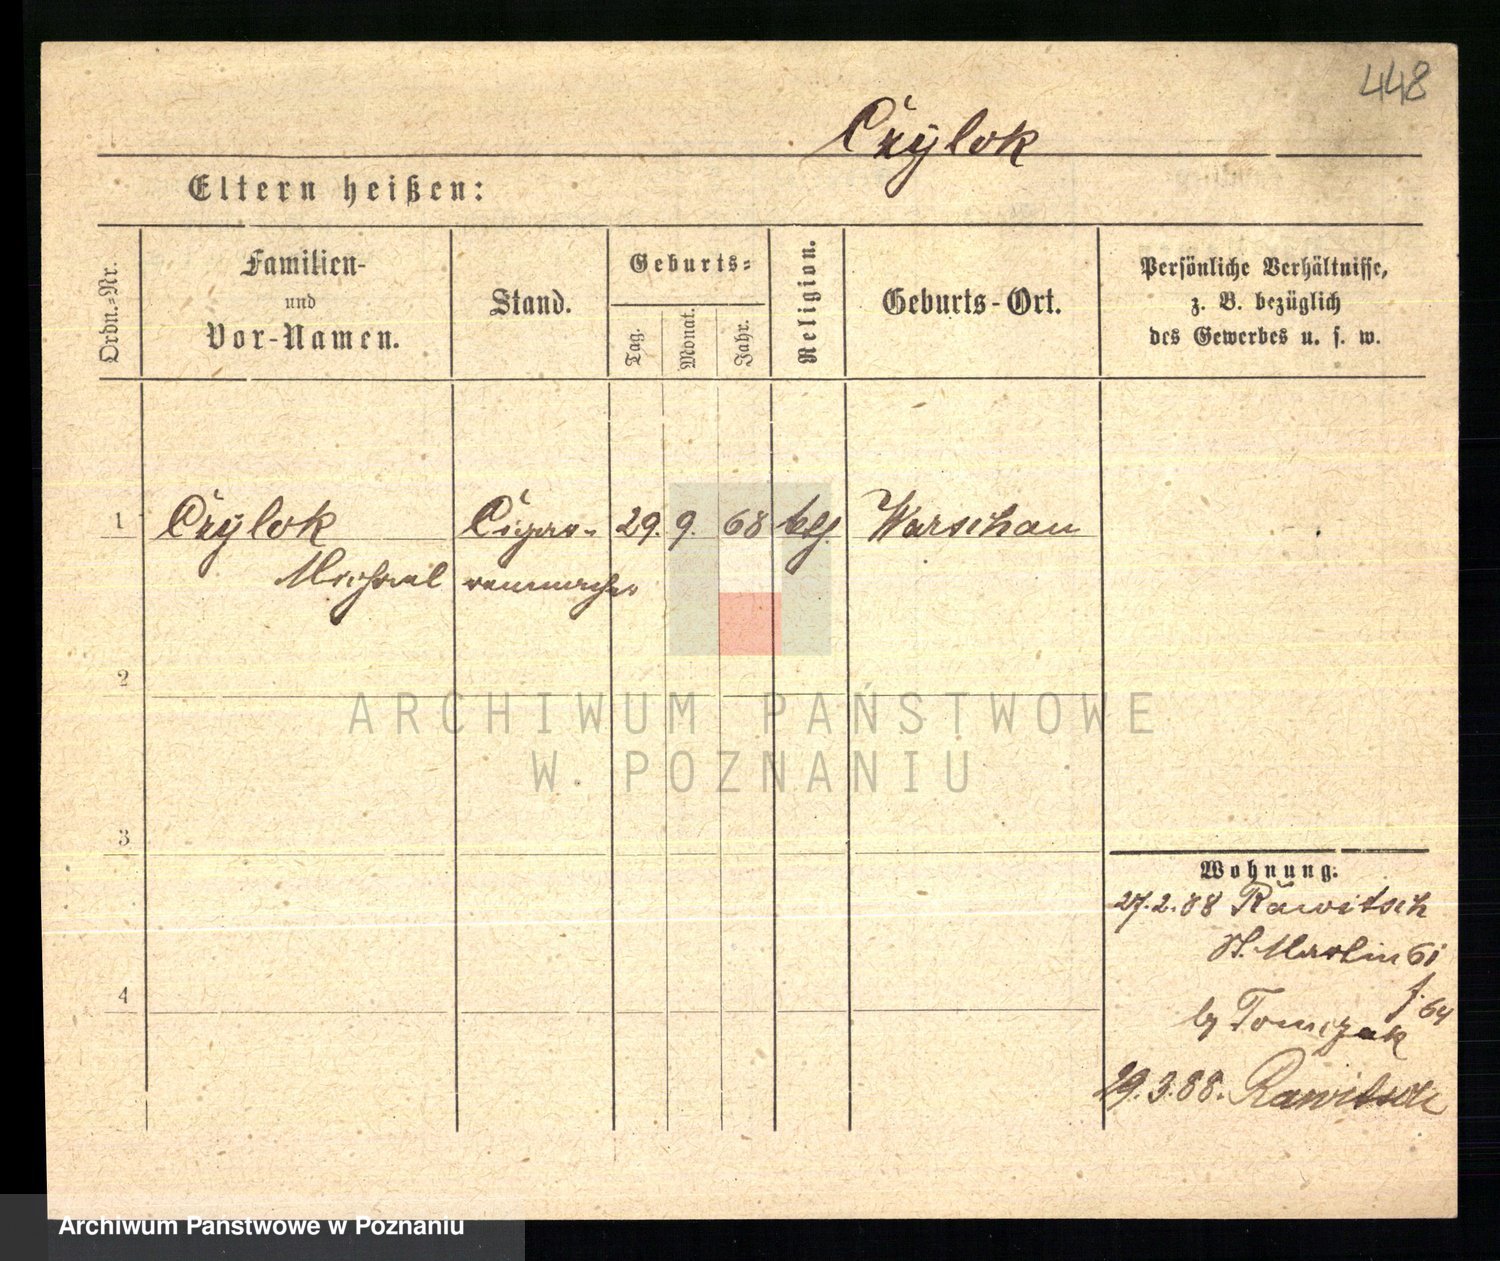 448
Czÿlok
Eltern heißen:
Ordn.-Nr.
Familien-
und
Vor-Namen.
Stand.
Geburts-
Tag.
Monat.
Jahr.
Religion.
Geburts-Ort.
Persönliche Verhältnisse,
z. B. bezüglich
des Gewerbes u. s. w.
1 Czÿlok Cigar- 29. 9. 68 Warschau
Michael renmacher
2
3
4
Wohnung.
27.2.88 Rawitsch
St. Martin 61
64
Tomczak
29.3.88. Rawitsch
ARCHIWUM PAŃSTWOWE
W POZNANIU
Archiwum Państwowe w Poznaniu